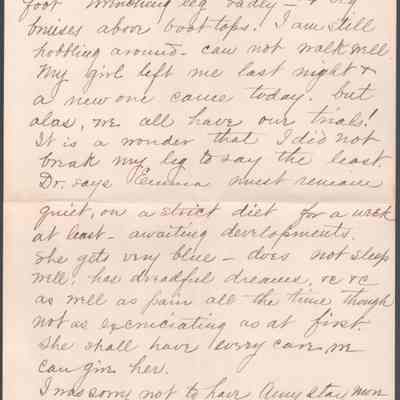 foot wrenching leg badly - + big
bruises above boot tops. I am still
hobbling around - can not walk well.
My girl left me last night +
a new one came today. but
alas, we all have our trials!
It is a wonder that I did not
break my leg to say the least.
Dr. says Emma must remain
quiet, on a strict diet for a week
at least - awaiting developments.
She gets very blue - does not sleep
well; has dreadful dreams, &c &c
as well as pain all the time though
not as excruciating as at first.
She shall have every care we
can give her.
I was sorry not to have Amy stay